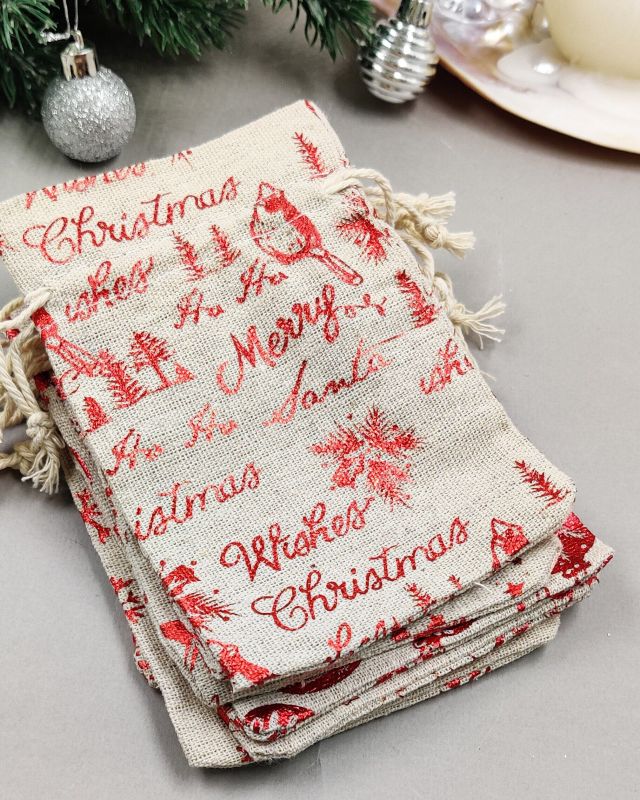 Wishes
Christmas
ishes
Ho Ho
Merry
Ho Ho Santa
wish
istmas
Wishes
Christmas